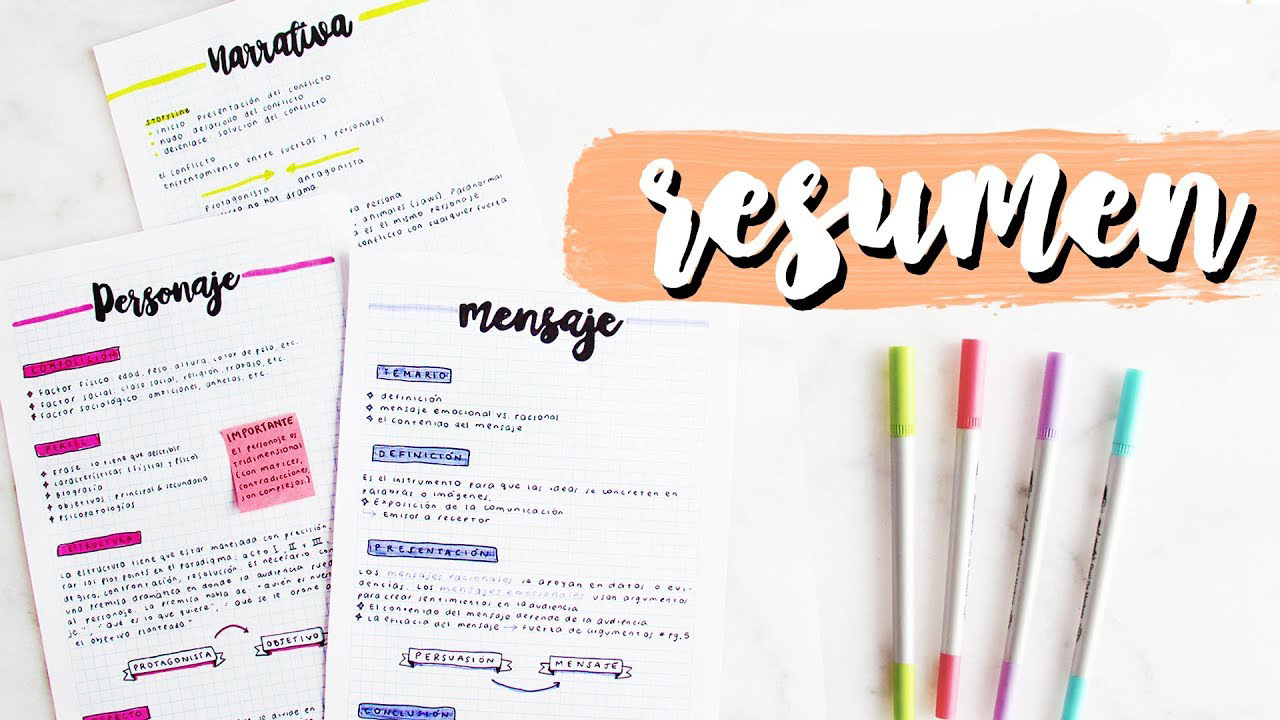 Narrativa
storyline
inicio Presentación del conflicto
nudo desarrollo del conflicto
desenlace: solución del conflicto
El conflicto
Enfrentamiento entre fuerzas y personajes
protagonista antagonista
no hay drama.
persona
animales (Jaws), Paranormal
el mismo personaje
conflicto con cualquier fuerza
resumen
Personaje
COMPOSICIÓN
Factor físico: edad, peso, altura, color de pelo, etc.
Factor social: clase social, religión, trabajo, etc.
Factor sociológico: ambiciones, anhelos, etc.
PERFIL
Frase: lo tiene que describir
características (físicas y psico)
biografía
objetivos: principal & secundario
psicopatologías
IMPORTANTE
El personaje es
tridimensional
(con matices,
contradicciones,
son complejos.)
ESTRUCTURA
La estructura tiene que estar manejada con precisión
los plot points en el paradigma: acto I, II & III
confrontación, resolución. Es necesario
una premisa dramática en donde la audiencia
al personaje. La premisa habla de: ¿quién es
¿Qué es lo que quiere?, ¿Qué se le opone
el objetivo planteado?
PROTAGONISTA
OBJETIVO
se divide en
mensaje
TEMARIO
definición
mensaje emocional vs. racional
el contenido del mensaje
DEFINICIÓN
Es el instrumento para que las ideas se concreten en
palabras o imágenes.
Exposición de la comunicación
→ Emisor a receptor
PRESENTACIÓN
Los mensajes racionales se apoyan en datos o evi
dencias. Los mensajes emocionales usan argumentos
para crear sentimientos en la audiencia
El contenido del mensaje depende de la audiencia
La eficacia del mensaje → Fuerza de argumentos * pg.5
PERSUASIÓN
MENSAJE
CONCLUSIÓN